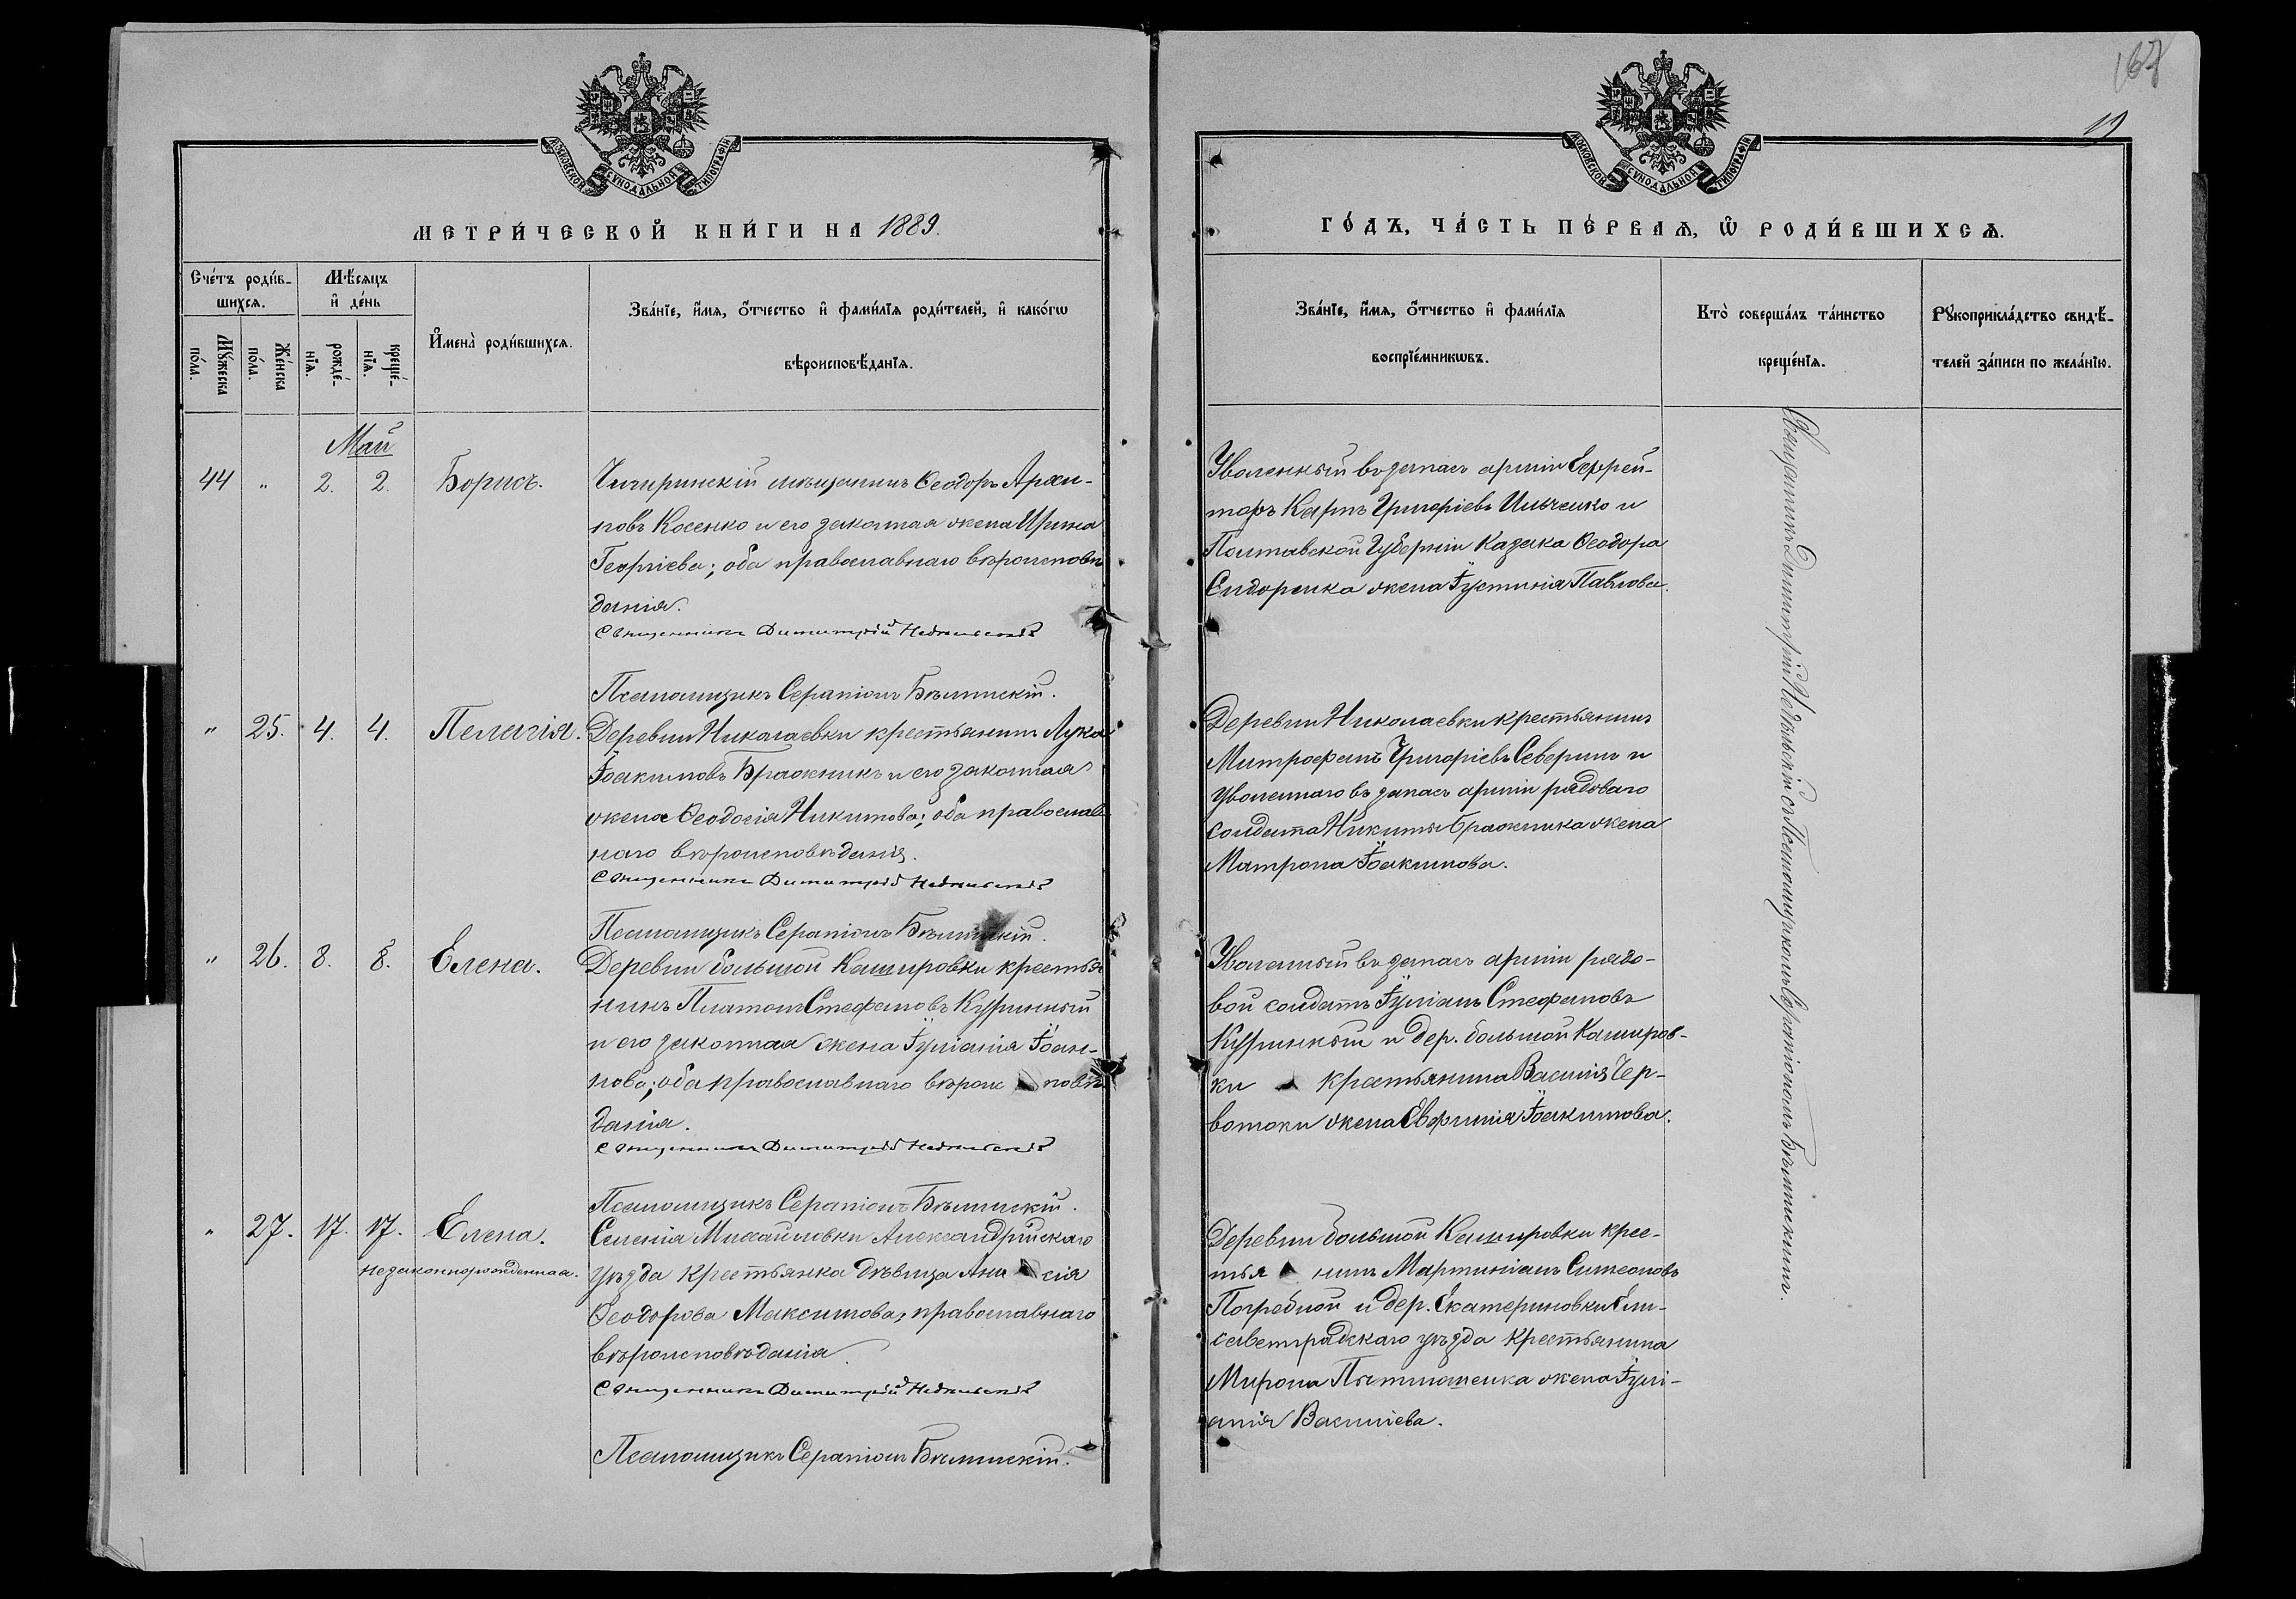 168
19
МОСКОВСКОЙ СѴНОДАЛЬНОЙ ТИПОГРАФІИ
МОСКОВСКОЙ СѴНОДАЛЬНОЙ ТИПОГРАФІИ
МЕТРИ́ЧЕСКОЙ КНИ́ГИ НА 1889.
ГО́ДЪ, ЧА́СТЬ ПЕ́РВАѦ, Ѽ РОДИ́ВШИХСѦ.
Сче́тъ роди́в-
шихсѧ.
Мꙋ́жеска
по́ла.
Же́нска
по́ла.
Мѣ́сѧцъ
и҆ де́нь
рожде́-
нїѧ.
креще́-
нїѧ.
И҆мена̀ роди́вшихсѧ.
Зва́нїе, и҆́мѧ, ѻ҆́тчество и҆ фами́лїѧ роди́телей, и҆ како́гѡ
вѣроисповѣ́данїѧ.
Зва́нїе, и҆́мѧ, ѻ҆́тчество и҆ фами́лїѧ
воспрїе́мникѡвъ.
Кто̀ соверша́лъ та́инство
креще́нїѧ.
Рꙋкоприкла́дство свидѣ́-
телей за́писи по жела́нїю.
Май
44 " 2. 2. Борисъ.
Чигиринскій мѣщанинъ Ѳеодоръ Архи-
повъ Косенко и его законная жена Ирина
Георгіева; оба православнаго вѣроисповѣ
данія.
Священникъ Димитрій Недѣльскій
Псаломщикъ Серапіонъ Бѣлинскій.
Уволенный въ запасъ арміи Ефрей-
торъ Карпъ Григоріевъ Ильченко и
Полтавской Губерніи Казака Ѳеодора
Сидоренка жена Іустинія Павлова.
" 25. 4. 4. Пелагія.
Деревни Николаевки крестьянинъ Лука
Іоакимовъ Бражникъ и его законная
жена Ѳеодосія Никитова; оба православ-
наго вѣроисповѣданія.
Священникъ Димитрій Недѣльскій
Псаломщикъ Серапіонъ Бѣлинскій.
Деревни Николаевки крестьянинъ
Митрофанъ Григоріевъ Северинъ и
уволеннаго въ запасъ арміи рядоваго
солдата Никиты Бражника жена
Матрона Іоакимова.
" 26. 8. 8. Елена.
Деревни большой Кашировки крестья
нинъ Платонъ Стефановъ
и его законная жена Іуліанія Іоан-
нова; оба православнаго вѣроис повѣ
данія.
Священникъ Димитрій Недѣльскій
Псаломщикъ Серапіонъ Бѣлинскій.
Уволенный въ запасъ арміи рядо-
вой солдатъ Іуліанъ Стефановъ
и дер. большой Каширов-
ки крестьянина Василія Чер-
вотоки жена Евфимія Іоакимова.
" 27. 17. 17. Елена.
незаконнорожденная.
Селенія Михайловки Александрійскаго
уѣзда крестьянка дѣвица Ани сія
Ѳеодорова Максимова, православнаго
вѣроисповѣданія.
Священникъ Димитрій Недѣльскій
Псаломщикъ Серапіонъ Бѣлинскій.
Деревни большой Кашировки крес-
тья нинъ Мартиніанъ Симеоновъ
Погребной и дер. Екатериновки Ели-
саветградскаго уѣзда крестьянина
Мирона жена Іулі-
анія Василіева.
Священникъ Димитрій Недѣльскій съ Псаломщикомъ Серапіономъ Бѣлинскимъ.